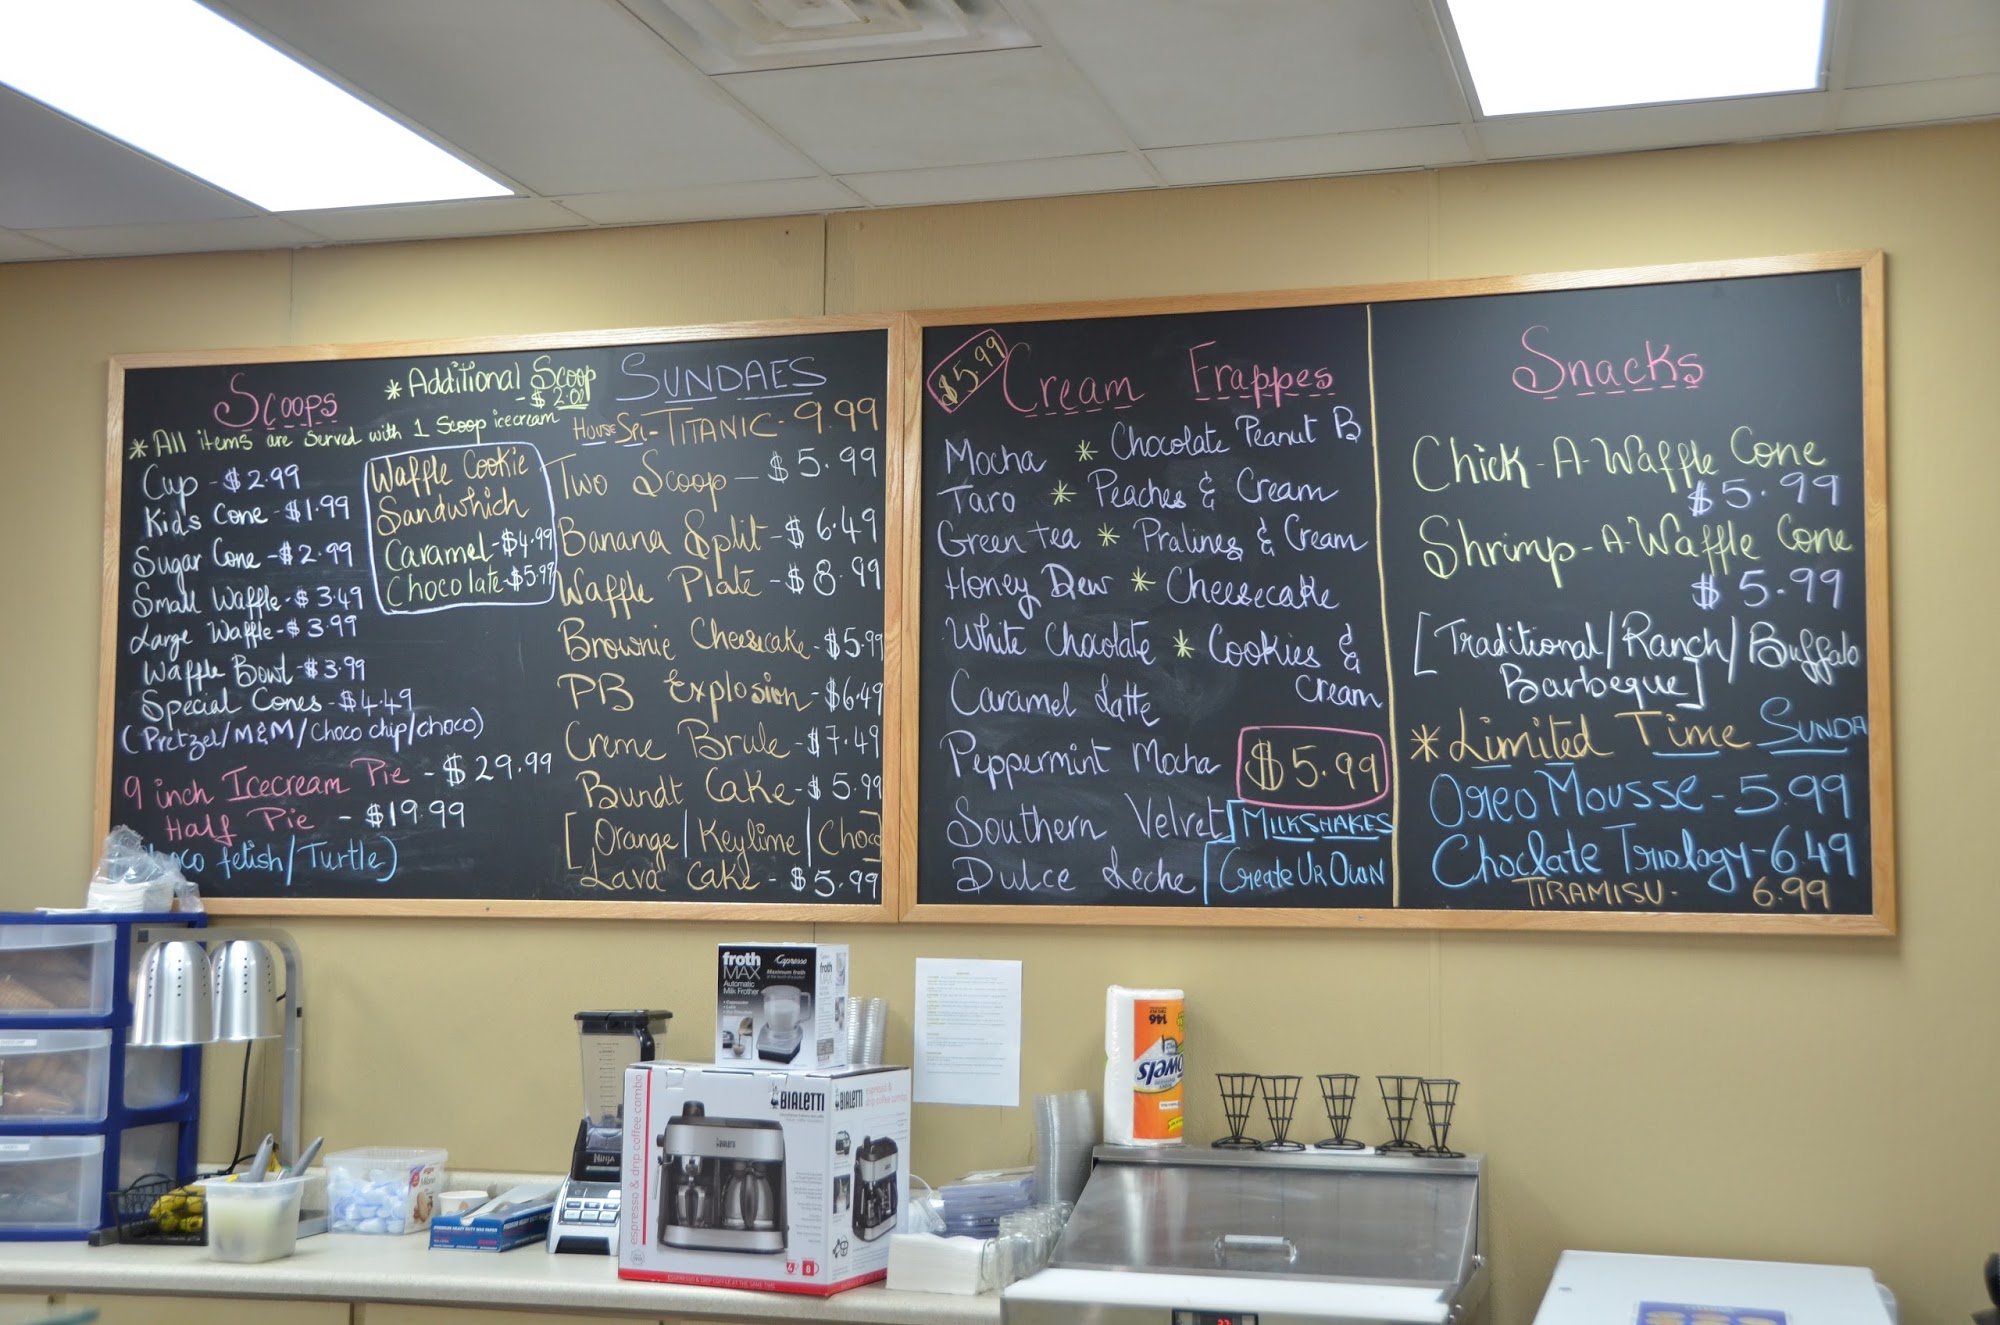 Scoops
*Additional Scoop
- $2.00
*All items are served with 1 Scoop icecream
Cup - $2.99
Kids Cone - $1.99
Sugar Cone - $2.99
Small Waffle - $3.49
Large Waffle - $3.99
Waffle Bowl - $3.99
Special Cones - $4.49
(Pretzel/M&M/Choco chip/choco)
9 inch Icecream Pie - $29.99
Half Pie - $19.99
fetish/Turtle)
Waffle Cookie
Sandwhich
Caramel - $4.99
Chocolate - $5.99
SUNDAES
House Spl - TITANIC - 9.99
Two Scoop - $5.99
Banana Split - $6.49
Waffle Plate - $8.99
Brownie Cheesecake - $5.99
PB Explosion - $6.49
Creme Brule - $7.49
Bundt Cake - $5.99
[Orange/Keylime/Choco
Lava Cake - $5.99
$5.99
Cream Frappes
Mocha * Chocolate Peanut B
Taro * Peaches & Cream
Green Tea * Pralines & Cream
Honey Dew * Cheesecake
White Chocolate * Cookies &
Cream
Caramel Latte
Peppermint Mocha
$5.99
Southern Velvet
Dulce Leche
MILKSHAKES
[Create UR OWN
Snacks
Chick-A-Waffle Cone
$5.99
Shrimp-A-Waffle Cone
$5.99
[Traditional/Ranch/Buffalo
Barbeque]
*Limited Time SUNDA
Oreo Mousse - 5.99
Choclate Triology - 6.49
TIRAMISU - 6.99
froth
MAX
Automatic
Milk Frother
Capresso
Maximum froth
BIALETTI
BIALETTI
espresso & drip coffee combo
espresso &
drip coffee combo
ESPRESSO & DRIP COFFEE AT THE SAME TIME
NINJA
146